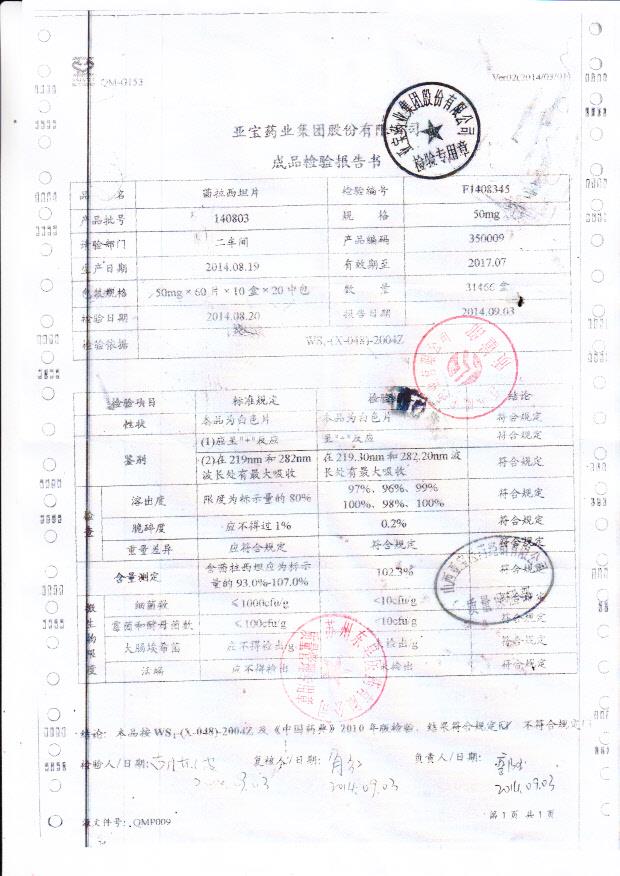 QM-G153 Ver02(2014/03/01)
亚宝药业集团股份有限公司
成品检验报告书
品 名 茴拉西坦片 检验编号 F1408345
产品批号 140803 规 格 50mg
请验部门 二车间 产品编码 350009
生产日期 2014.08.19 有效期至 2017.07
包装规格 50mg×60片×10盒×20中包 数 量 31466盒
检验日期 2014.08.20 报告日期 2014.09.03
检验依据 WS1-(X-048)-2004Z
检验项目 标准规定 检验 结论
性状 本品为白色片 本品为白色片 符合规定
鉴别 (1)应呈"+"反应 呈"+"反应 符合规定
(2)在219nm和282nm波长处有最大吸收 在219.30nm和282.20nm波长处有最大吸收 符合规定
检查 溶出度 限度为标示量的80% 97%、96%、99% 100%、98%、100% 符合规定
脆碎度 应不得过1% 0.2% 符合规定
重量差异 应符合规定 符合规定 符合规定
含量测定 含茴拉西坦应为标示量的93.0%-107.0% 102.3% 符合规定
微生物限度 细菌数 ≤1000cfu/g <10cfu/g 符合规定
霉菌和酵母菌数 ≤100cfu/g <10cfu/g 符合规定
大肠埃希菌 应不得检出/g 未检出/g 符合规定
活螨 应不得检出 未检出 符合规定
结论: 本品按WS1-(X-048)-2004Z及《中国药典》2010年版检验，结果符合规定☑ 不符合规定□
检验人/日期: 复核人/日期: 2014.09.03 负责人/日期: 2014.09.03
源文件号: QMP009 第1页 共1页
亚宝药业集团股份有限公司
检验专用章